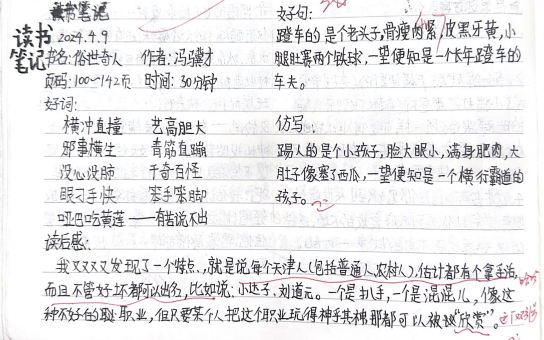 读书笔记
读书
笔记
2024.4.9
书名:俗世奇人 作者:冯骥才
页码:100~142页 时间:30分钟
好词:
横冲直撞 艺高胆大
邪事横生 青筋直蹦
没心没肺 千奇百怪
眼刁手快 笨手笨脚
哑巴吃黄莲——有苦说不出
好句:
蹬车的是个老头子,骨瘦肉紧,皮黑牙黄,小
腿肚赛两个铁球,一望便知是一个长年蹬车的
车夫。
仿写:
踢人的是个小孩子,脸大眼小,满身肥肉,大
肚子像塞了西瓜,一望便知是一个横行霸道的
孩子。
读后感:
我又又又发现了一个特点,就是说每个天津人(包括普通人、农村人),估计都有个拿手活,
而且不管好坏都可以出名,比如说:小达子、刘道元。一个是扒手,一个是混混儿,像这
种不好的职业,但只要某个人把这个职业玩得神乎其神那都可以被"欣赏"。